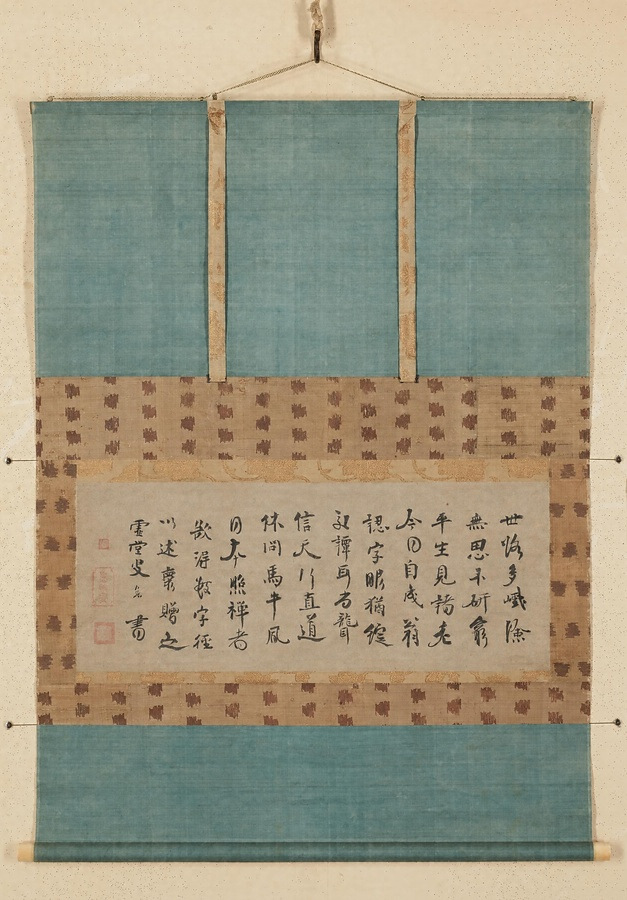 世路多巇險
無思不研窮
平生見諸老
今日自成翁
認字眼猶綻
交譚耳尚聾
信天行直道
休問馬牛風
日本照禪者
欲得數字徑
以述懷贈之
虛堂叟智愚書